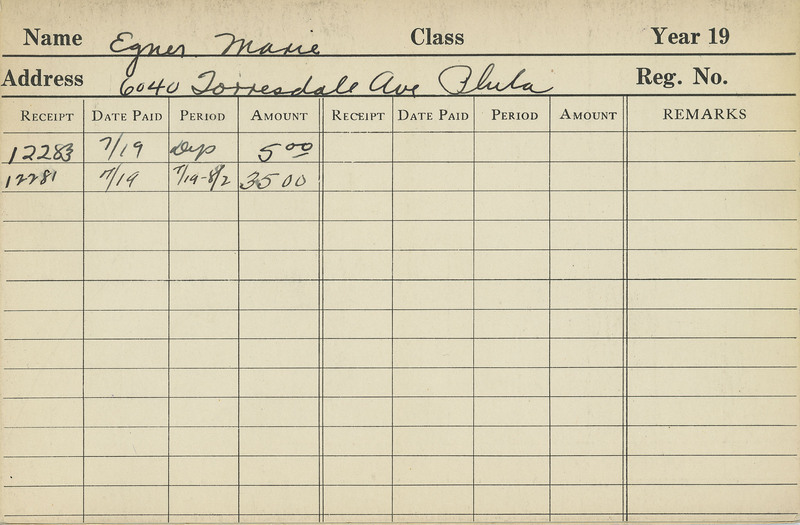 Name Egner Marie Class Year 19
Address 6040 Torresdale Ave Phila Reg. No.
RECEIPT DATE PAID PERIOD AMOUNT RECEIPT DATE PAID PERIOD AMOUNT REMARKS
12283 7/19 Dep 5 00
12281 7/19 7/19-8/2 35 00